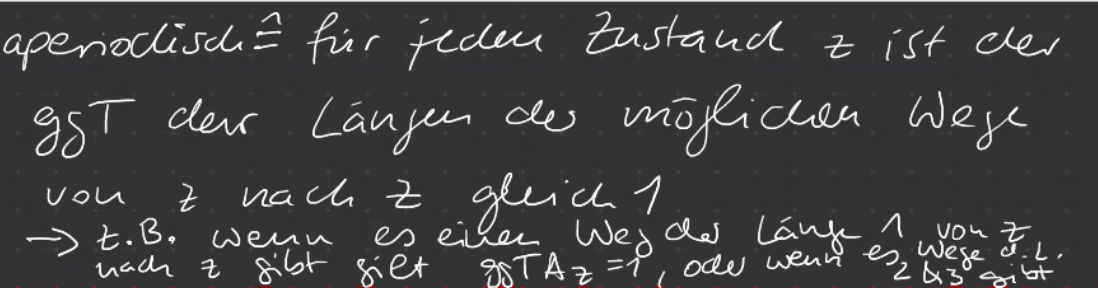 aperiodisch ≙ für jeden Zustand z ist der
ggT der Längen der möglichen Wege
von z nach z gleich 1
→ z.B. wenn es einen Weg der Länge 1 von z
nach z gibt gilt ggT A_z = 1, oder wenn es Wege d. L. 2 & 3 gibt